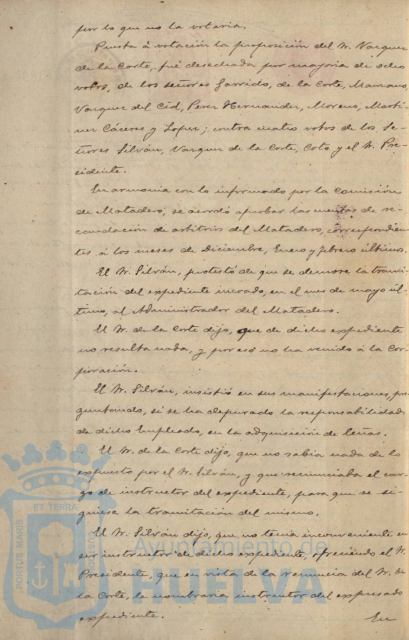 pero lo que no la votaria.
Puesta á votación la proposición del Sr. Vazquez
de la Corte, fué desechada por mayoria de ocho
votos, de los señores Garrido, de la Corte, Mamano,
Vazquez del Cid, Perez Hernandez, Moreno, Marti-
nez Cáceres y Lopez; contra cuatro votos de los Se-
ñores Silván, Vazquez de la Corte, Coto, y el Sr. Pre-
sidente.
En armonia con lo informado por la Comisión
de Matadero, se acordó aprobar las cuentas de re-
caudación de arbitrios del Matadero, correspondien-
tes, á los meses de Diciembre, Enero y febrero últimos.
El Sr. Silván, protestó de que se demore la trami-
tación del expediente incoado, en el mes de mayo úl-
timo, al Administrador del Matadero.
El Sr. de la Corte dijo, que de dicho expediente
no resulta nada, y por eso no ha venido á la Cor-
poración.
El Sr. Silván, insistió en sus manifestaciones, pre-
guntando, si se ha depurado la responsabilidad
de dicho Empleado, en la adquisición de leñas.
El Sr. de la Corte dijo, que no sabia nada de lo
expuesto por el Sr. Silván, y que renunciaba el car-
go de instructor del expediente, para que se si-
guiese la tramitación del mismo.
El Sr. Silván dijo, que no tenia inconveniente en
ser instructor de dicho expediente, ofreciendo el Sr.
Presidente, que en vista de la renuncia del Sr. de
la Corte, le nombraria instructor del expresado
expediente.
En
PORTUS MARIS ET TERRÆ
Ayuntamiento de
HUELVA